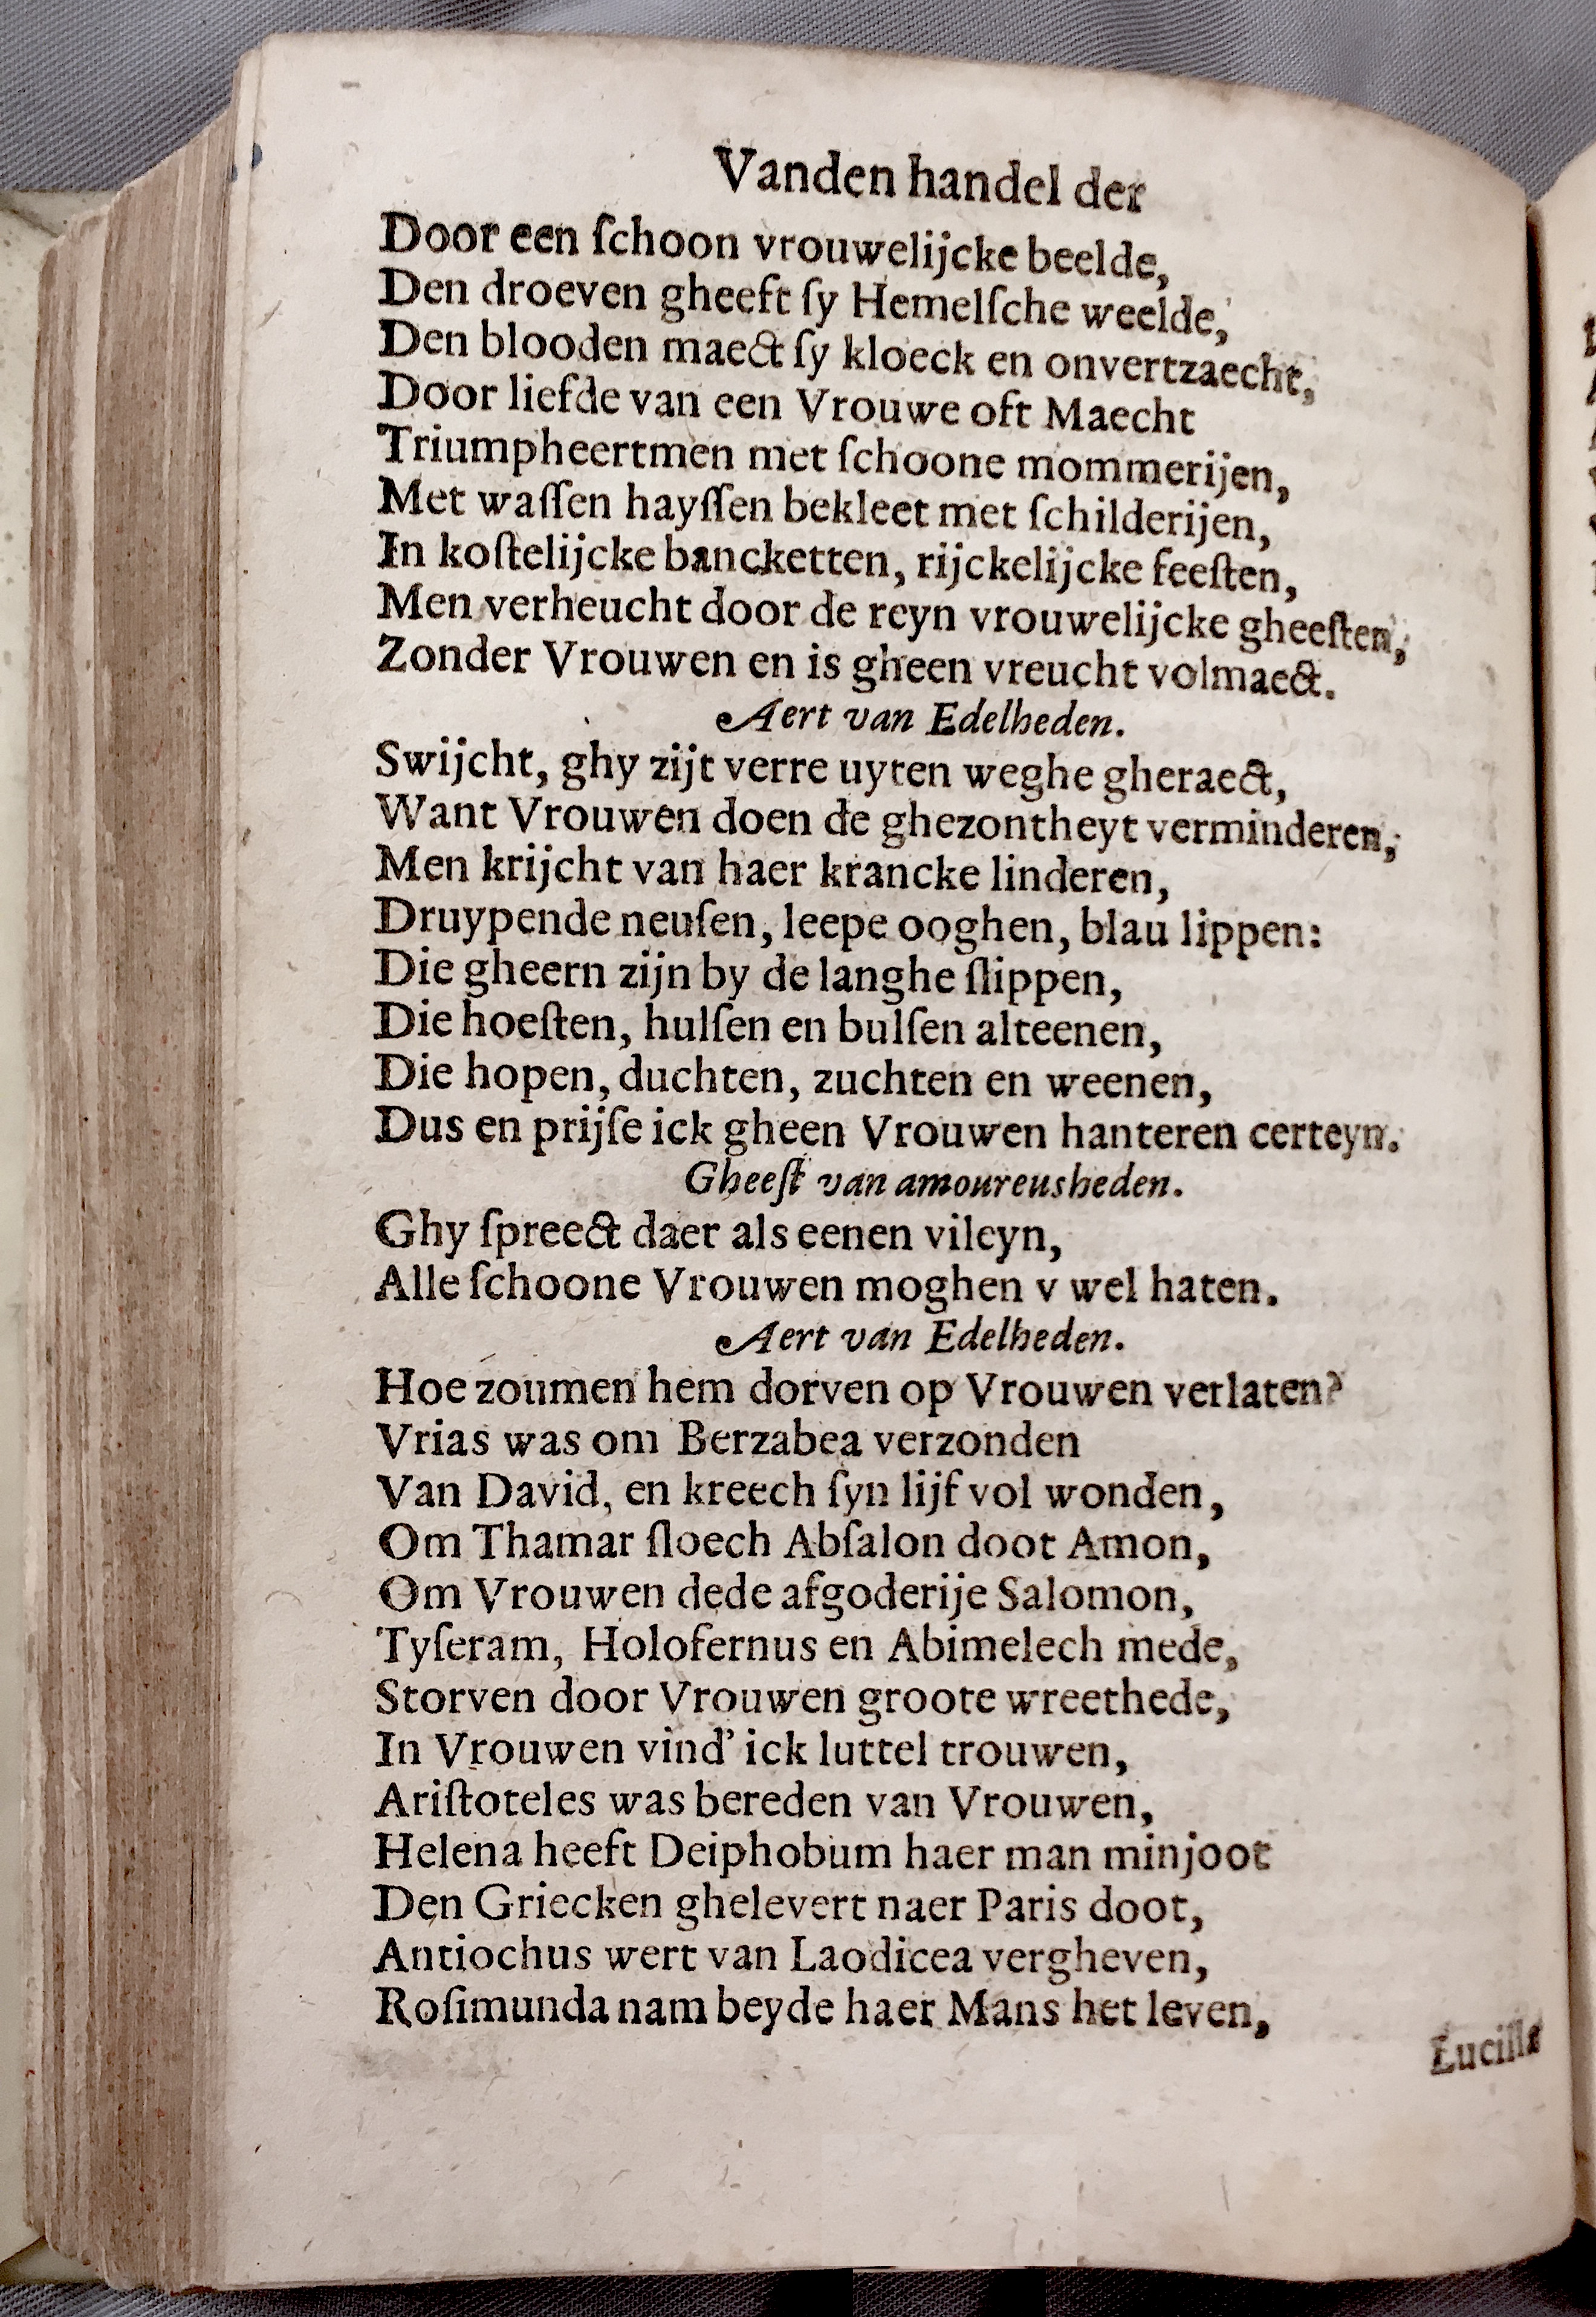 Vanden handel der
Door een ſchoon vrouwelijcke beelde,
Den droeven gheeft ſy Hemelſche weelde,
Den blooden maect ſy kloeck en onvertzaecht,
Door liefde van een Vrouwe oft Maecht
Triumpheertmen met ſchoone mommerijen,
Met waſſen hayſſen bekleet met ſchilderijen,
In koſtelijcke bancketten, rijckelijcke feeſten,
Men verheucht door de reyn vrouwelijcke gheeſten,
Zonder Vrouwen en is gheen vreucht volmaect.
Aert van Edelheden.
Swijcht, ghy zijt verre uyten weghe gheraect,
Want Vrouwen doen de ghezontheyt verminderen,
Men krijcht van haer krancke linderen,
Druypende neuſen, leepe ooghen, blau lippen:
Die gheern zijn by de langhe ſlippen,
Die hoeſten, hulſen en bulſen alteenen,
Die hopen, duchten, zuchten en weenen,
Dus en prijſe ick gheen Vrouwen hanteren certeyn.
Gheeſt van amoureusheden.
Ghy ſpreect daer als eenen vileyn,
Alle ſchoone Vrouwen moghen v wel haten.
Aert van Edelheden.
Hoe zoumen hem dorven op Vrouwen verlaten?
Vrias was om Berzabea verzonden
Van David, en kreech ſyn lijf vol wonden,
Om Thamar ſloech Abſalon doot Amon,
Om Vrouwen dede afgoderije Salomon,
Tyſeram, Holofernus en Abimelech mede,
Storven door Vrouwen groote wreethede,
In Vrouwen vind' ick luttel trouwen,
Ariſtoteles was bereden van Vrouwen,
Helena heeft Deiphobum haer man minjoot
Den Griecken ghelevert naer Paris doot,
Antiochus wert van Laodicea vergheven,
Roſimunda nam beyde haer Mans het leven,
Lucilla